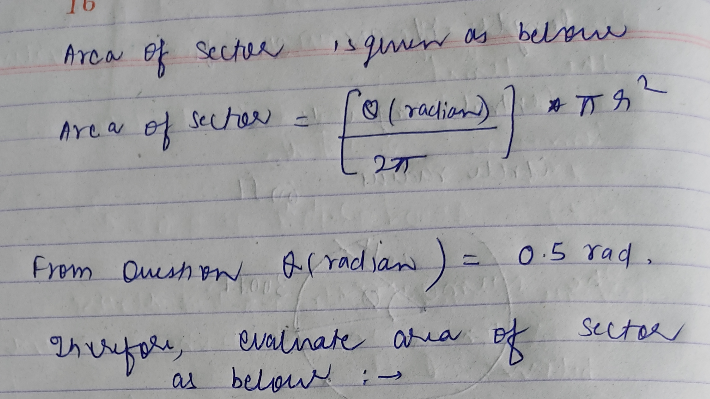 16
Area of sector is given as below
Area of sector = [θ(radian) / 2π] * π r²
From Question θ(radian) = 0.5 rad.
Therefore, evaluate area of sector
as below :→